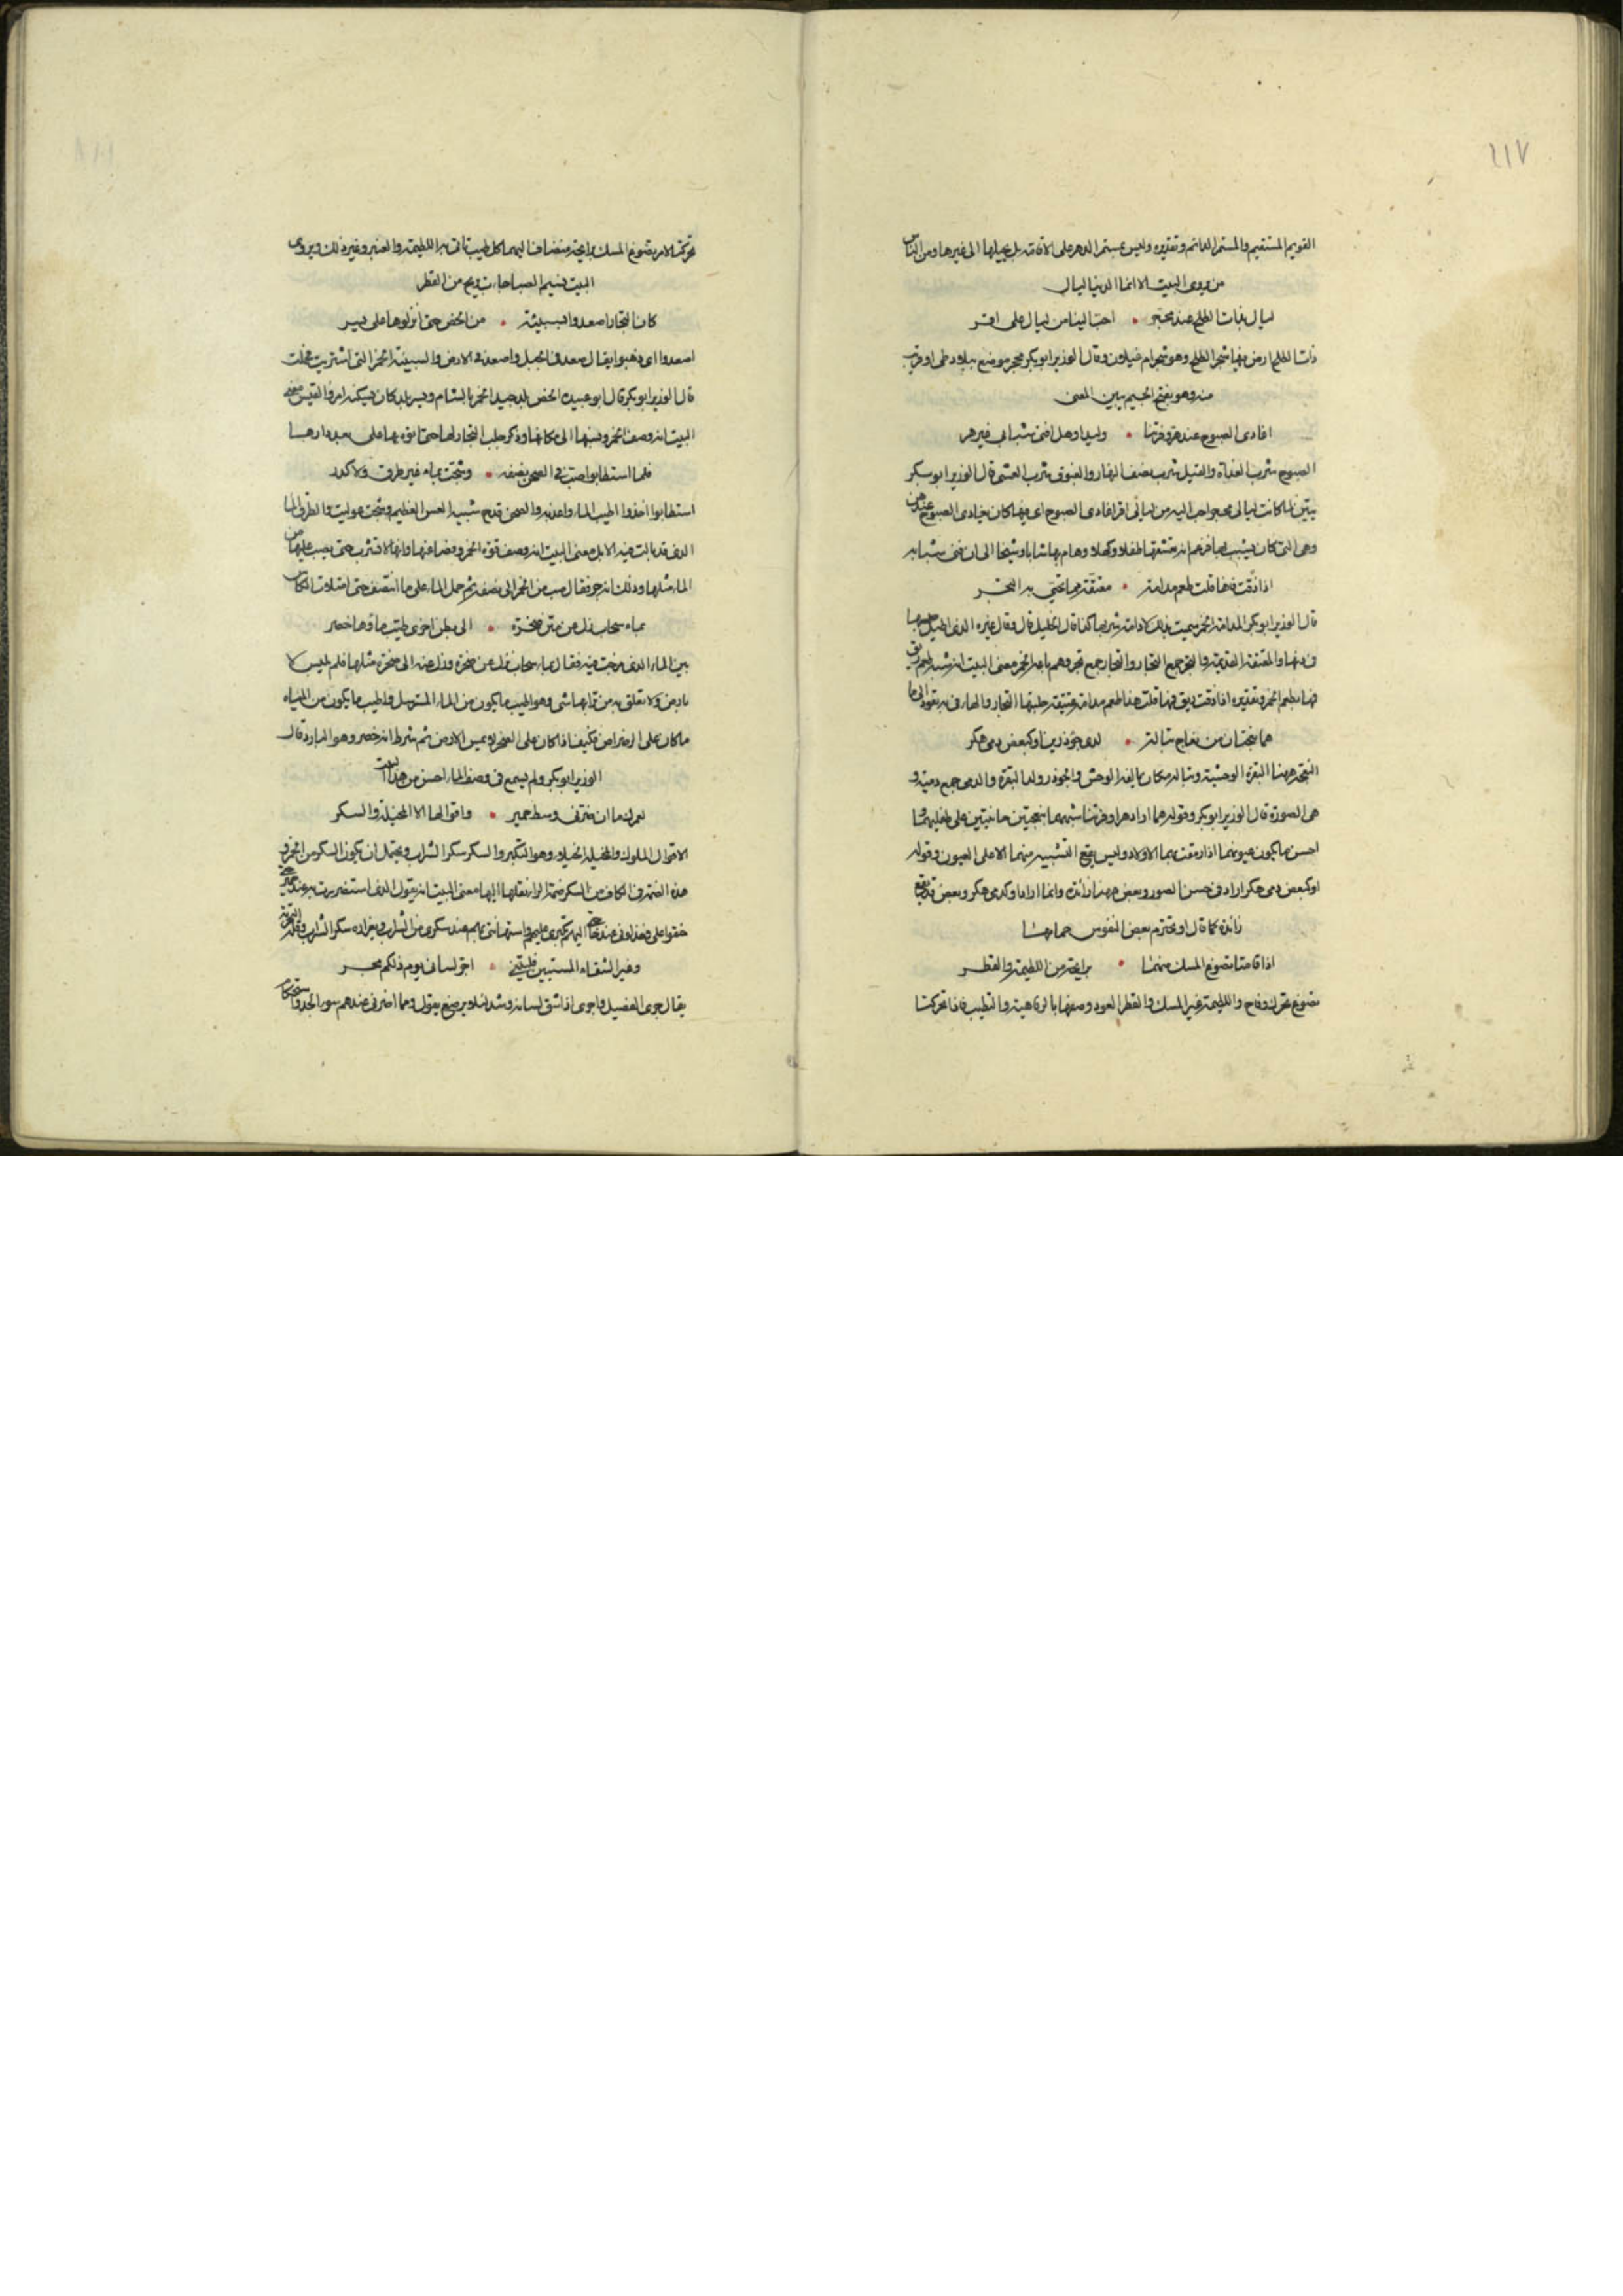 ٢١٧
القويم المستقيم والمستمر الدائم وتقديره وليس بمستمر الدهر على الاقامة بل يحيلها الى غيرها ومن الناس
من يروى البيت الا انما الدنيا ليال
ليال بذات الطلح عند محجر • احب الينا من ليال على اقر
ذات الطلح ارض فيها شجر الطلح وهو شجر ام غيلان وقال الوزير ابو بكر محجر موضع ببلاد طى او قريب
منه وهو بفتح الجيم يبين المعنى
اغادى الصبوح عند هر وفرتنا • وليدا وهل افنى شبابى غير هر
الصبوح شرب الغداة والقيل شرب نصف النهار والغبوق شرب العشى قال الوزير ابو بكر
يبين لما كانت ليالى محجر احب اليه من ليالى اقر اغادى الصبوح اى فيها كان يغادى الصبوح عند هر
وهى التى كان يشبب بها فزعم انه تعشقها طفلا وكهلا وهام بها شابا وشيخا الى ان فنى شبابه
اذا ذقت فاها قلت طعم مدامة • معتقة مما تجيئ به التجر
قال الوزير ابو بكر المدامة الخمر سميت بذلك لادامة شربها كذا قال الخليل قال وقال غيره الذى اطيل حبسها
فى دنها والمعتقة القديمة والتجر جمع التجار والتجار جمع تجر وهم باعة الخمر معنى البيت انه شبه طعم ريق
فيها بطعم الخمر وتقديره اذا ذقت ريق فيها قلت هذا طعم مدامة عتيقة جلبها التجار والهاء فى به تعود الى ما
هما نعجتان من نعاج تبالة • لدى جؤذرين او كبعض دمى هكر
النعجة ههنا البقرة الوحشية وتبالة مكان يالفه الوحش والجوذر ولد البقرة والدمى جمع دمية و
هى الصورة قال الوزير ابو بكر وقوله هما اراد هرا وفرتنا شبههما بنعجتين حانيتين على طفليهما و
احسن ما يكون عيونهما اذا رمقت بهما الاولاد وليس يقع التشبيه منهما الا على العيون وقوله
او كبعض دمى هكر اراد فى حسن الصور وبعض ههنا زائدة وانما اراد او كدمى هكر وبعض قد يقع
زائدة كما قال او يخترم بعض النفوس حمامها
اذا قامتا تضوع المسك منهما • برايحة من اللطيمة والقطر
تضوع تحرك وفاح واللطيمة عير المسك والقطر العود وصفها بالرفاهية والتطيب فاذا تحركتا
تحركتا لامر تضوع المسك برايحة منضافا اليهما كل طيب تاتى به اللطيمة والعنبر وغير ذلك ويروى
البيت نسيم الصبا جاءت بريح من القطر
كان التجار اصعدوا بسبيئة • من الخص حتى انزلوها على يسر
اصعدوا اى ذهبوا يقال صعد فى الجبل واصعد فى الارض والسبيئة الخمر التى اشتريت فحملت
قال الوزير ابو بكر قال ابو عبيدة الخص بلد جيد الخمر بالشام ويسر بلد كان يسكنه امرؤ القيس معنى
البيت انه وصف الخمر ونسبها الى مكانها وذكر جلب التجار لها حتى اتوه بها على بعد دارها
فلما استطابوا صب فى الصحن نصفه • وشجت بماء غير طرق ولا كدر
استطابوا اخذوا اطيب الماء واعذبه والصحن قدح شبيه العس العظيم وشجت عوليت والطرق الماء
الذى قد بالت فيه الابل معنى البيت انه وصف قوة الخمر وفضاعتها وانها لا تشرب حتى يصب عليها من
الماء مثلها وذلك انه جر فقال صب من الخمر الى نصفه ثم حمل الماء على ما انتصف حتى امتلات الكاس
بماء سحاب زل عن متن صخرة • الى بطن اخرى طيب ماؤها خصر
بين الماء الذى مزجت فيه فقال بماء سحاب نزل عن صخرة وزل عنه الى صخرة مثلها فلم يلبس لا
بارض ولا تعلق به من ترابها شى وهو اطيب ما يكون من الماء المسترسل واطيب ما يكون من المياه
ماكان على الرضراض فكيف اذا كان على الصخر لم يمس الارض ثم شرط انه خصر وهو البارد قال
الوزير ابو بكر ولم يسمع فى وصف الماء احسن من هذا البيت
لعمرك ما ان ضرنى وسط حمير • واقوالها الا المخيلة والسكر
الاقوال الملوك والمخيلة الخيلاء وهو التكبر والسكر سكر الشراب ويحتمل ان يكون السكر من الخمر و
هذه الضمة فى الكاف من السكر ضمة الراء نقلها اليها معنى البيت انه يقول الذى استضررت به عند حمير حتى
حقوا على فخذلونى عند حاجتى اليهم تكبرى عليهم واستهانتى بهم عند سكرى من الشراب
وغير الشقاء المستبين فليتنى • اجر لسانى يوم ذلكم مجر
يقال جرى الفصيل واجرى اذا شق لسانه وشد لئلا يرضع يقول وما اضرنى عندهم سوء الجد